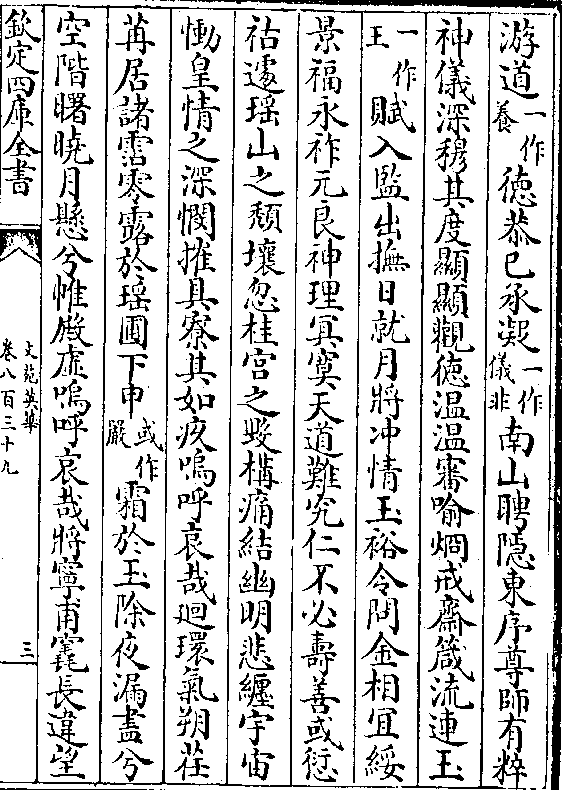 游道一作養德恭已承凝一作儀非南山聘隱東序尊師有粹
神儀深穆其度顯顯觀德温温審喻炯戒齋箴流連玉
一作王賦入監出撫日就月將冲情玉裕令問金相宜綏
景福永祚元良神理冥寞天道難究仁不必壽善或愆
祜遽瑶山之頽壤忽桂宫之毁構痛結幽明悲纏宇宙
慟皇情之深憫摧具寮其如疚嗚呼哀哉迴環氣朔荏
苒居諸霑零露於瑶圃下申或作嚴霜於玉除夜漏盡兮
空階曙曉月懸兮帷殿虚嗚呼哀哉將寧甫窽長違望
欽定四庫全書
文苑英華
卷八百三十九
三